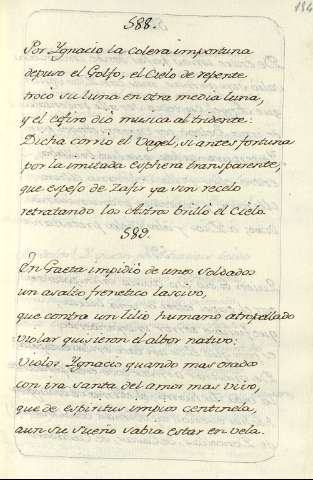 194
588.
Por Ygnacio la colera importuna
depuso el Golfo, el Cielo de repente
trocó su luna en otra media luna,
y el çefiro dió musica al tridente:
Dicha corrió el Vagel, si antes fortuna
por la imitada esphera transparente,
que espejo de Zafir ya sin recelo
retratando los Astros brilló el Cielo.
589.
En Gaeta impidió de unos soldados
un asalto frenetico lascivo,
que contra un lilio humano atropellado
violar quisieron el albor nativo:
Violos Ygnacio quando mas osados
con ira santa del amor mas vivo,
que de espiritus impios centinela,
aun su sueño sabia estar en vela.